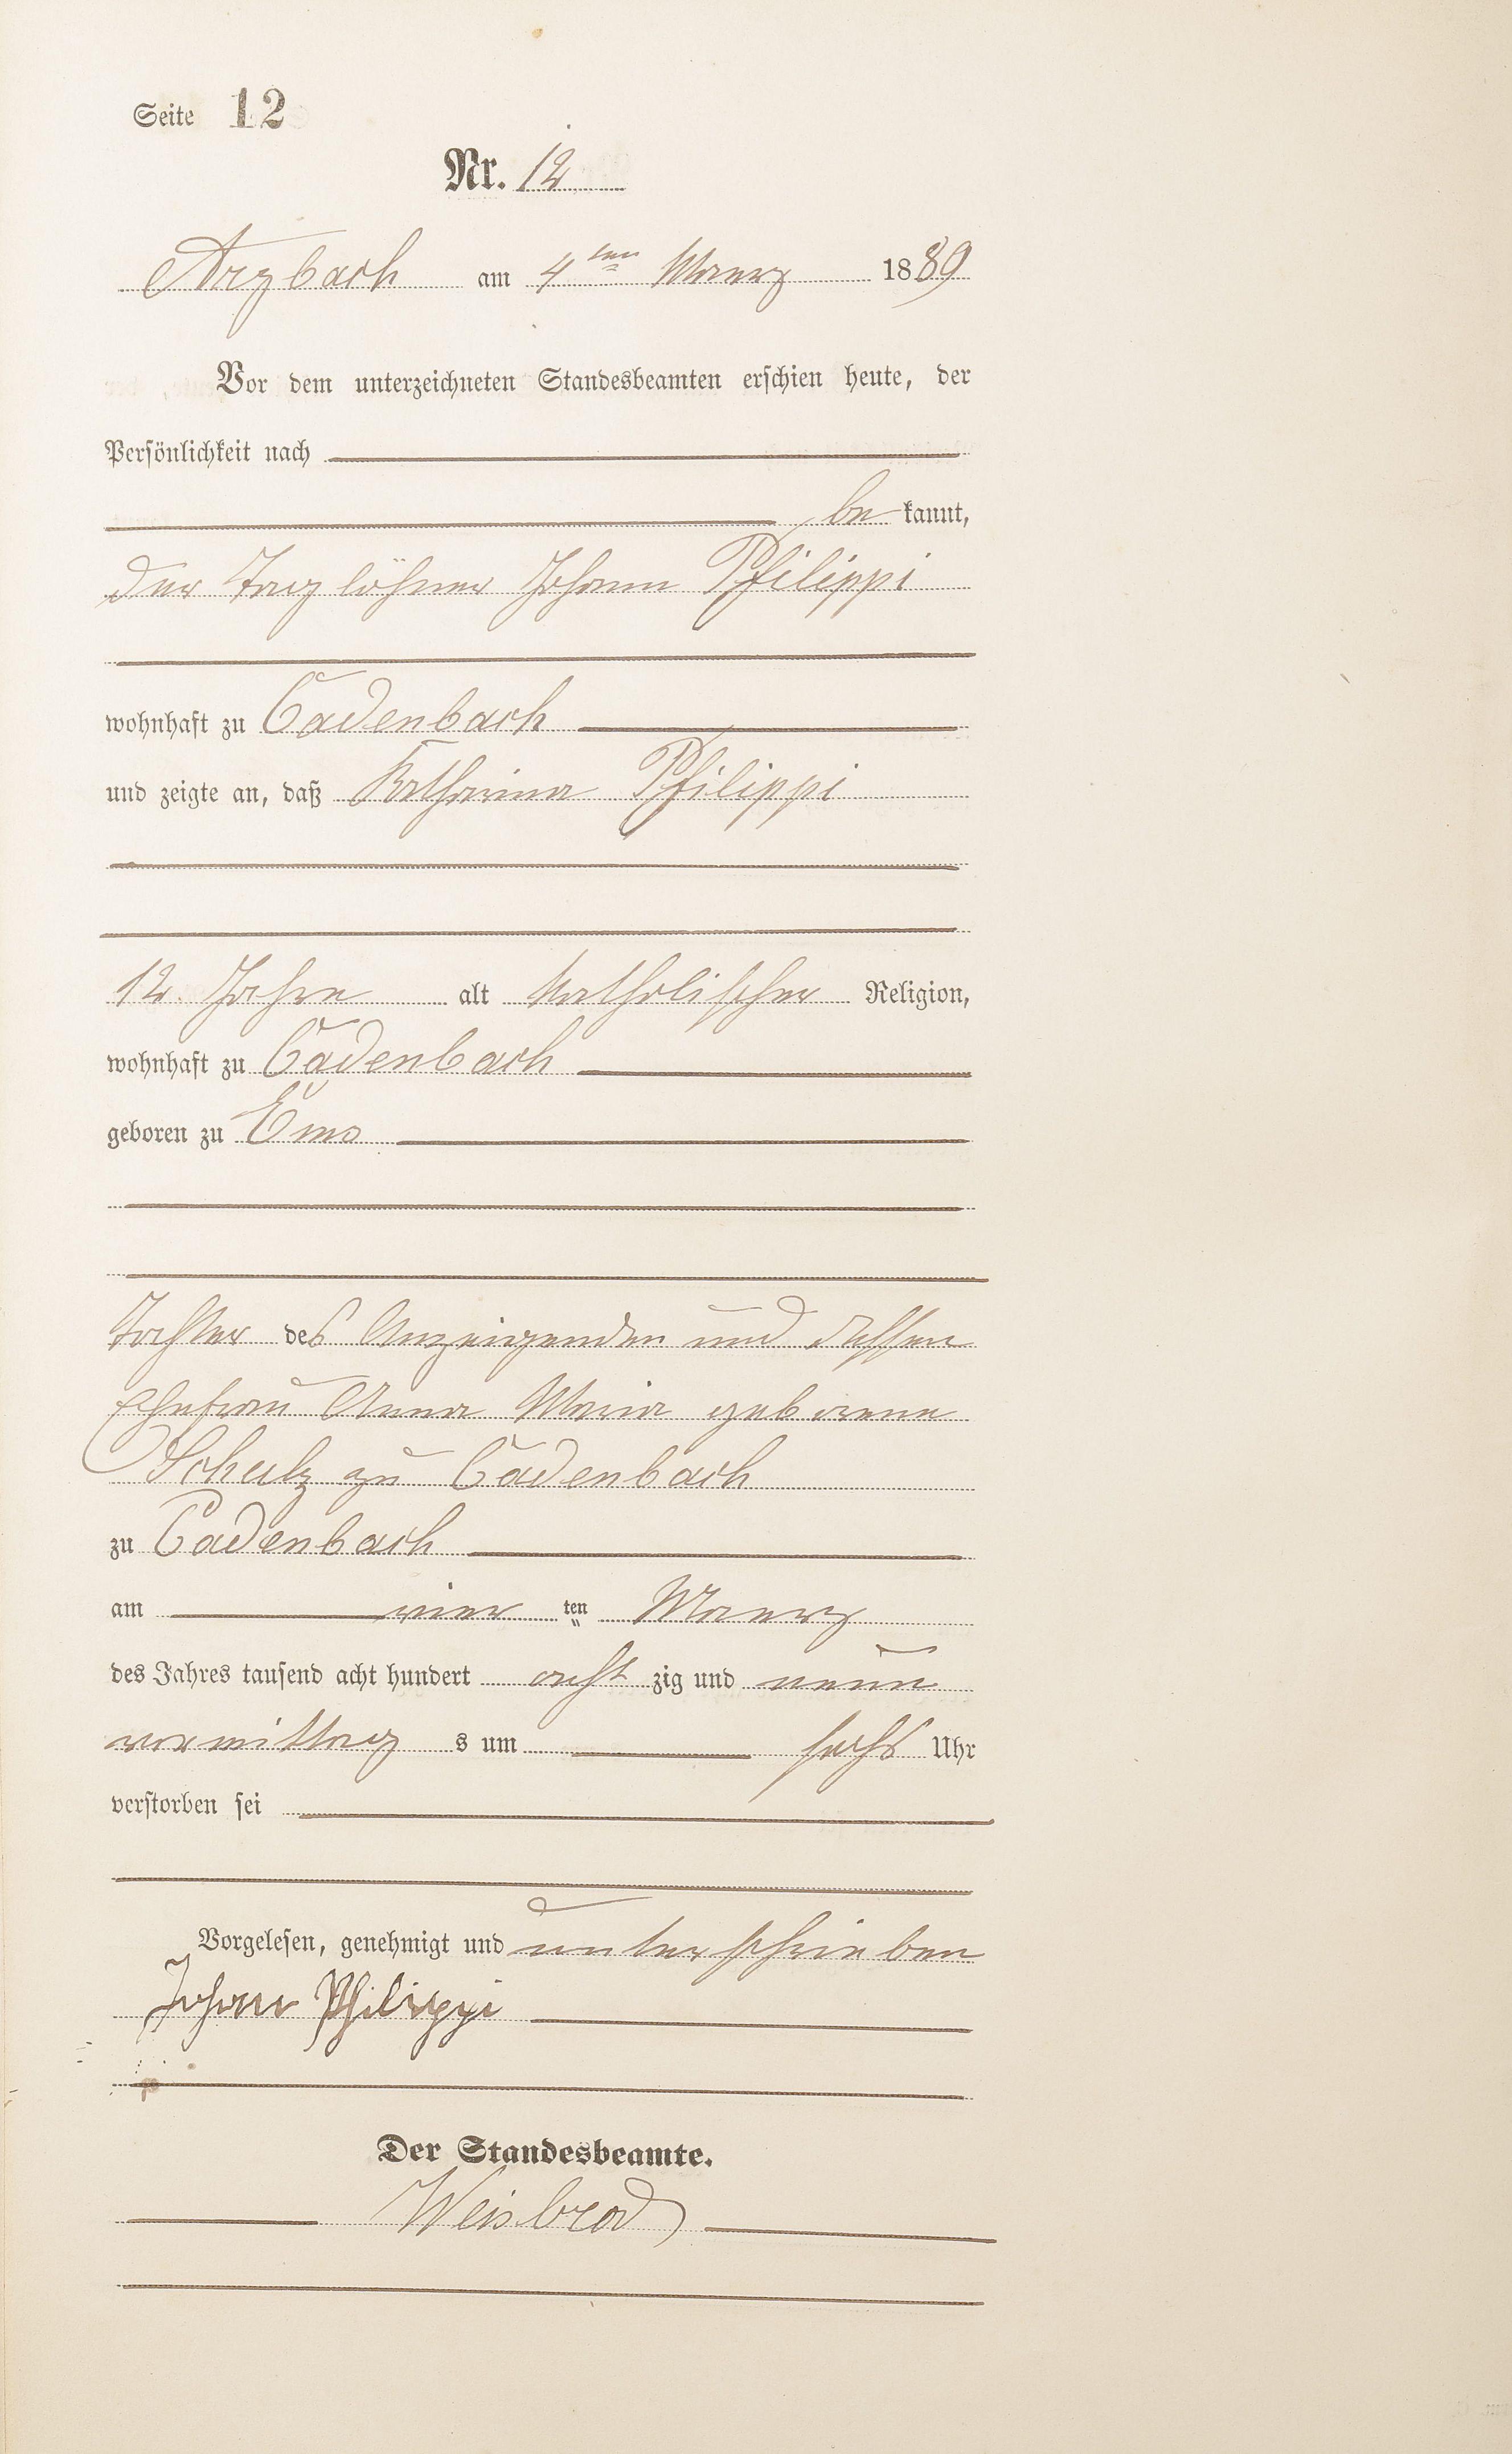 Seite 12
Nr. 12
Arzbach am 4ten Maerz 1889
Vor dem unterzeichneten Standesbeamten erschien heute, der
Persönlichkeit nach
be kannt,
der Taglöhner Johann Philippi
wohnhaft zu Cadenbach
und zeigte an, daß Katharina Philippi
12 Jahre alt katholischer Religion,
wohnhaft zu Cadenbach
geboren zu Ems
Tochter des Anzeigenden und dessen
Ehefrau Anna Maria geborene
Schulz zu Cadenbach
zu Cadenbach
am vier ten Maerz
des Jahres tausend acht hundert acht zig und neun
vormittag s um sechs Uhr
verstorben sei
Vorgelesen, genehmigt und unterschrieben
Johann Philippi
Der Standesbeamte.
Weisbrod